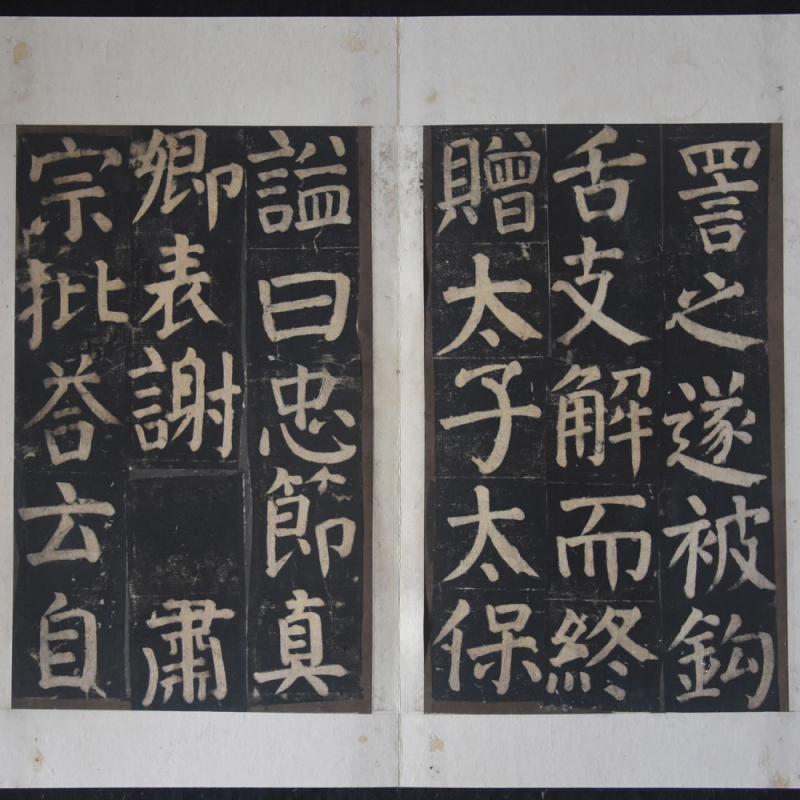 詈之遂被鈎
舌支解而終
贈太子太保
謚曰忠節真
卿表謝肅
宗批荅云自